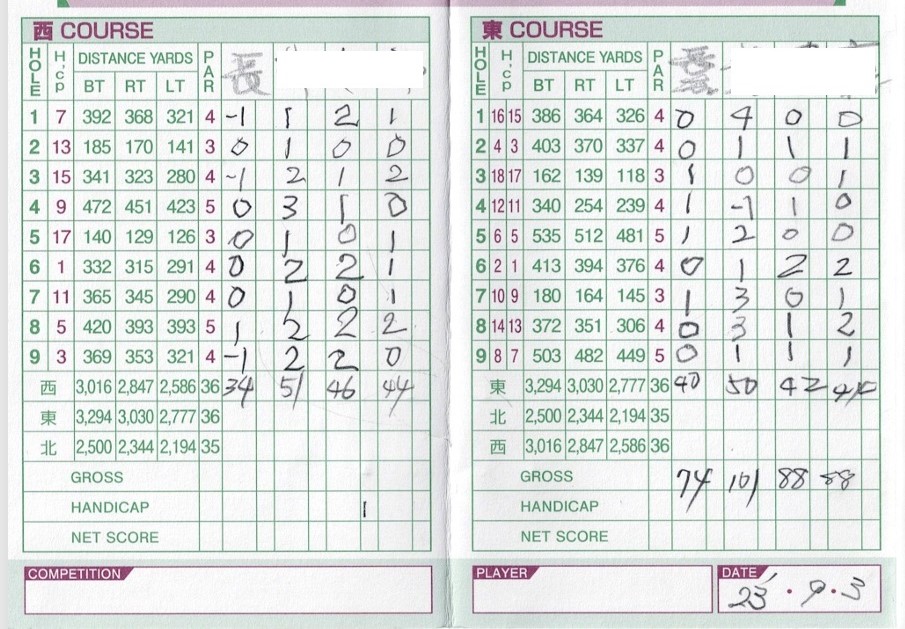 西 COURSE
HOLE H'cp DISTANCE YARDS PAR 長
BT RT LT
1 7 392 368 321 4 -1 1 2 1
2 13 185 170 141 3 0 1 0 0
3 15 341 323 280 4 -1 2 1 2
4 9 472 451 423 5 0 3 1 0
5 17 140 129 126 3 0 1 0 1
6 1 332 315 291 4 0 2 2 1
7 11 365 345 290 4 0 1 0 1
8 5 420 393 393 5 1 2 2 2
9 3 369 353 321 4 -1 2 2 0
西 3,016 2,847 2,586 36 34 51 46 44
東 3,294 3,030 2,777 36
北 2,500 2,344 2,194 35
GROSS
HANDICAP
NET SCORE
COMPETITION
東 COURSE
HOLE H'cp DISTANCE YARDS PAR 長
BT RT LT
1 16 15 386 364 326 4 0 4 0 0
2 4 3 403 370 337 4 0 1 1 1
3 18 17 162 139 118 3 1 0 0 1
4 12 11 340 254 239 4 1 -1 1 0
5 6 5 535 512 481 5 1 2 0 0
6 2 1 413 394 376 4 0 1 2 2
7 10 9 180 164 145 3 1 3 0 1
8 14 13 372 351 306 4 0 3 1 2
9 8 7 503 482 449 5 0 1 1 1
東 3,294 3,030 2,777 36 40 50 42 44
北 2,500 2,344 2,194 35
西 3,016 2,847 2,586 36
GROSS 74 101 88 88
HANDICAP
NET SCORE
PLAYER
DATE 23・9・3